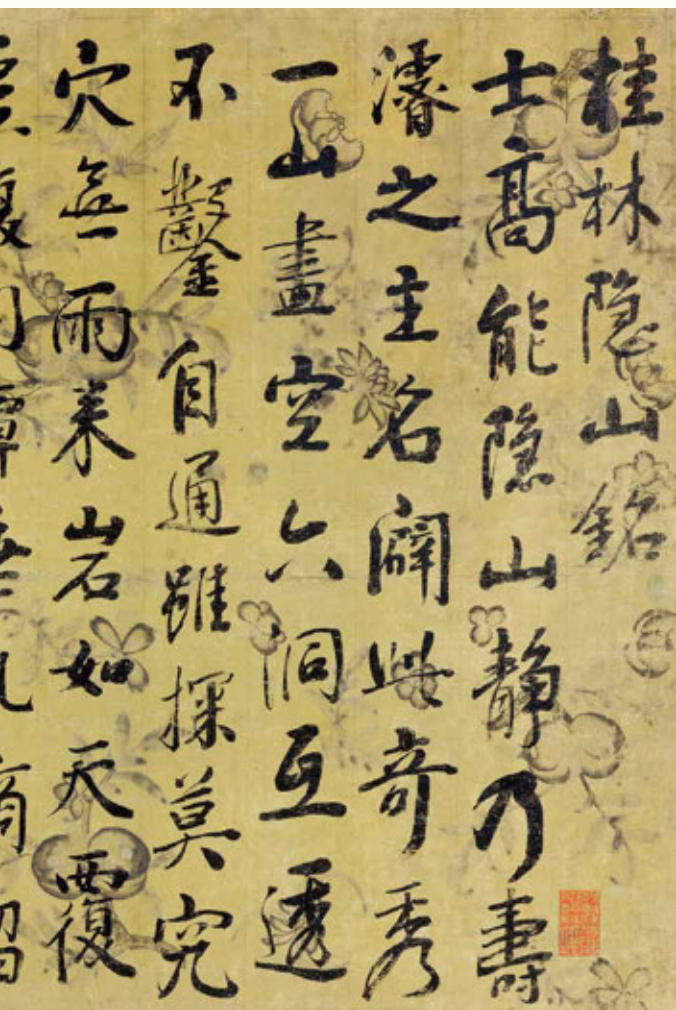 桂林隐山銘
士高能隐山静乃壽
濬之主名闢此奇秀
一山盡空六洞互透
不鑿自通雖探莫究
穴無雨来岩如天覆